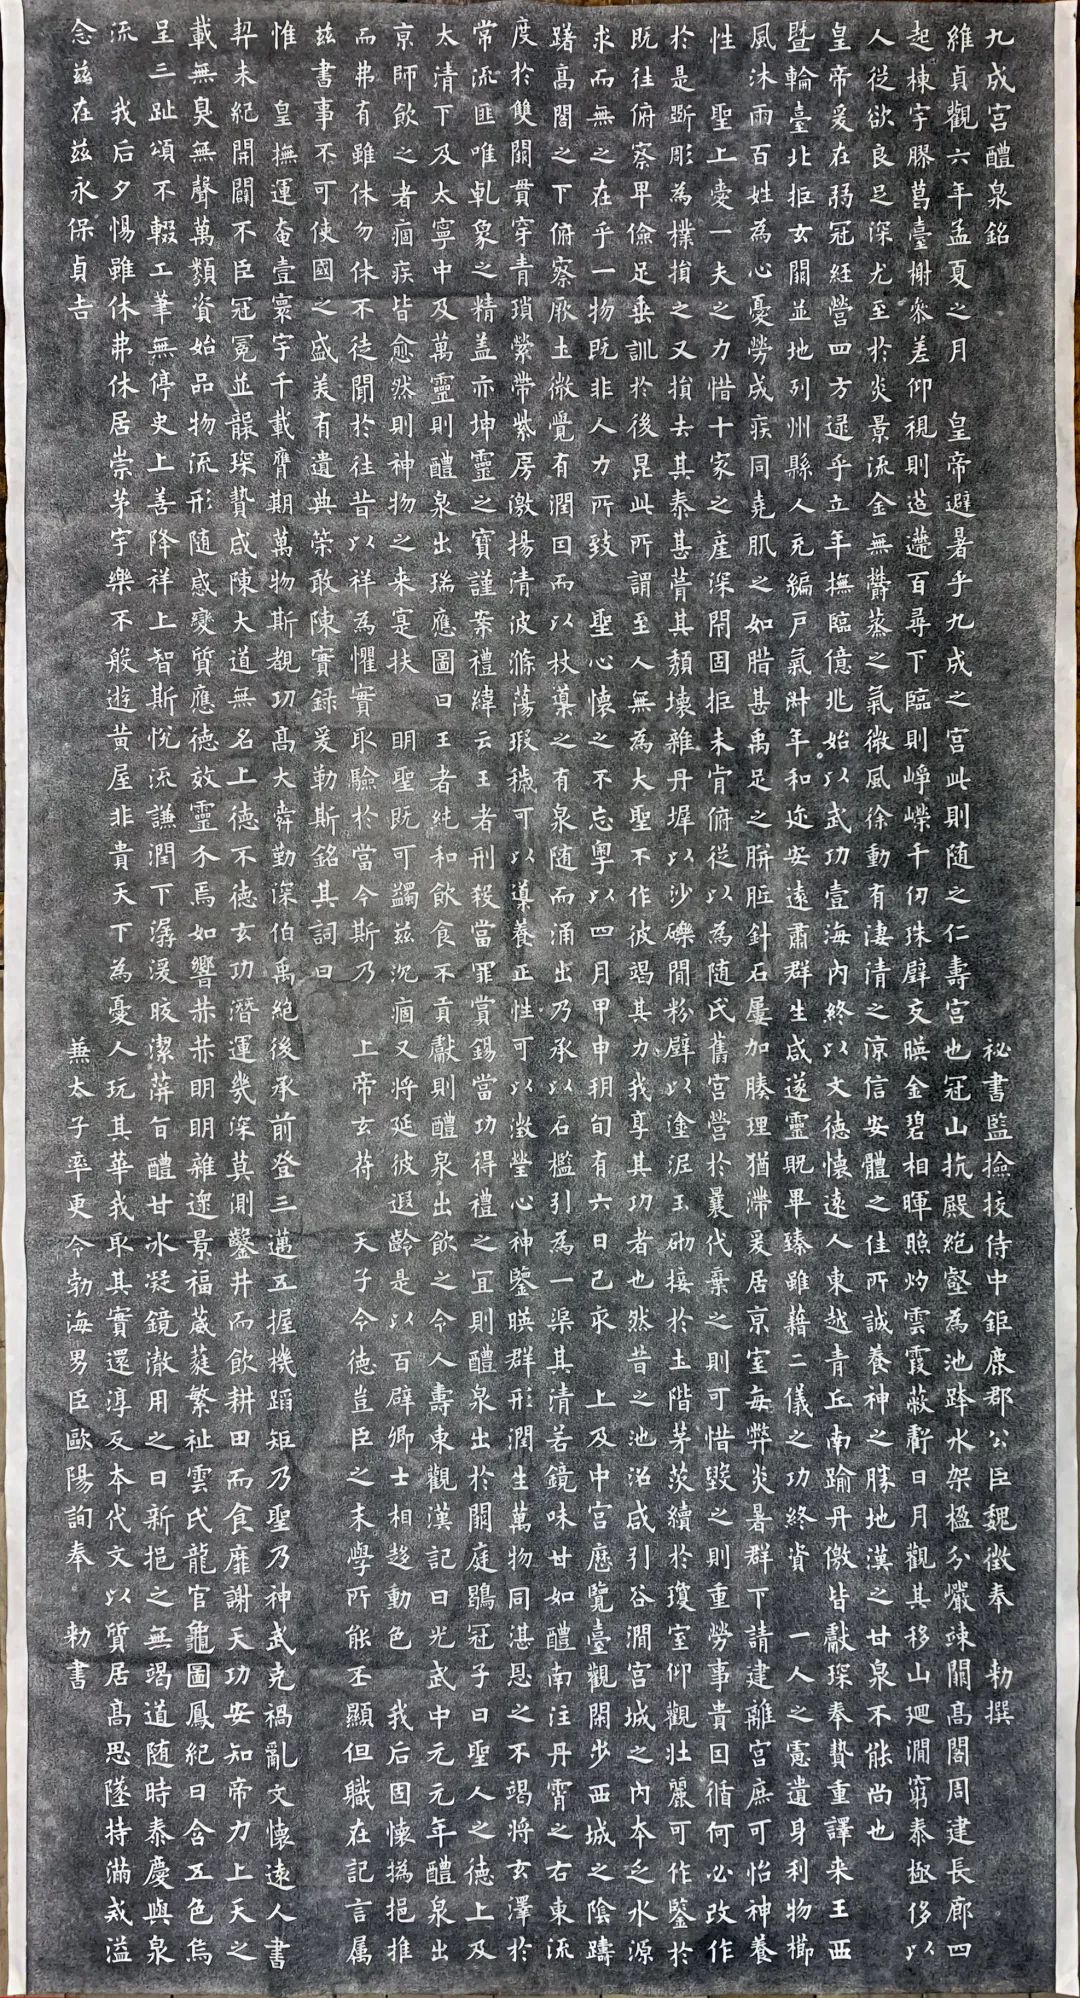 九成宮醴泉銘　秘書監撿挍侍中鉅鹿郡公臣魏徵奉　勅撰
維貞觀六年孟夏之月　皇帝避暑乎九成之宮此則随之仁壽宮也冠山抗殿絶壑為池跨水架楹分巖竦闕高閣周建長廊四
起棟宇膠葛臺榭參差仰視則迢遰百尋下臨則崢嶸千仞珠璧交暎金碧相暉照灼雲霞蔽虧日月觀其移山廻澗窮泰極侈以
人從欲良足深尤至於炎景流金無欝蒸之氣微風徐動有淒清之涼信安體之佳所誠養神之勝地漢之甘泉不能尚也
皇帝爰在弱冠經營四方逮乎立年撫臨億兆始以武功壹海內終以文德懷遠人東越青丘南踰丹儌皆獻琛奉贄重譯来王西
暨輪臺北拒玄闕並地列州縣人充編戶氣淋年和迩安遠肅群生咸遂靈貺畢臻雖藉二儀之功終資　一人之慮遺身利物櫛
風沐雨百姓為心憂勞成疾同堯肌之如腊甚禹足之胼胝針石屢加腠理猶滯爰居京室每弊炎暑群下請建離宮庶可怡神養
性　聖上愛一夫之力惜十家之產深閇固拒未肯俯從以為随氏舊宮營於曩代棄之則可惜毀之則重勞事貴因循何必改作
於是斲彫為樸損之又損去其泰甚葺其頹壞雜丹墀以沙礫間粉壁以塗泥玉砌接於土階茅茨續於瓊室仰觀壯麗可作鑒於
既往俯察卑儉足垂訓於後昆此所謂至人無為大聖不作彼竭其力我享其功者也然昔之池沼咸引谷澗宮城之內本乏水源
求而無之在乎一物既非人力所致　聖心懷之不忘粵以四月甲申朔旬有六日己亥　上及中宮歷覽臺觀閑步西城之陰躊
躇高閣之下俯察厥土微覺有潤因而以杖導之有泉随而涌出乃承以石檻引為一渠其清若鏡味甘如醴南注丹霄之右東流
度於雙闕貫穿青瑣縈帶紫房激揚清波滌蕩瑕穢可以導養正性可以澂瑩心神鑒暎群形潤生萬物同湛恩之不竭將玄澤於
常流匪唯乹象之精盖亦坤靈之寶謹案禮緯云王者刑殺當罪賞錫當功得禮之宜則醴泉出於闕庭鶡冠子曰聖人之德上及
太清下及太寧中及萬靈則醴泉出瑞應圖曰王者純和飲食不貢獻則醴泉出飲之令人壽東觀漢記曰光武中元元年醴泉出
京師飲之者痼疾皆愈然則神物之来寔扶　明聖既可蠲兹沉痼又將延彼遐齡是以百辟卿士相趍動色　我后固懷撝挹推
而弗有雖休勿休不徒聞於往昔以祥為懼實取驗於當今斯乃　上帝玄符　天子令德豈臣之末學所能丕顯但職在記言属
兹書事不可使國之盛美有遺典策敢陳實錄爰勒斯銘其詞曰
惟　皇撫運奄壹寰宇千載膺期萬物斯覩功高大舜勤深伯禹絶後承前登三邁五握機蹈矩乃聖乃神武克禍亂文懷遠人書
契未紀開闢不臣冠冕並襲琛贄咸陳大道無名上德不德玄功潛運幾深莫測鑿井而飲耕田而食靡謝天功安知帝力上天之
載無臭無聲萬類資始品物流形随感變質應德效靈介焉如響赫赫明明雜遝景福葳蕤繁祉雲氏龍官龜圖鳳紀日含五色烏
呈三趾頌不輟工筆無停史上善降祥上智斯悅流謙潤下潺湲皎潔蓱旨醴甘冰凝鏡澈用之日新挹之無竭道随時泰慶與泉
流　我后夕惕雖休弗休居崇茅宇樂不般遊黃屋非貴天下為憂人玩其華我取其實還淳反本代文以質居高思墜持滿戒溢
念兹在兹永保貞吉　兼太子率更令勃海男臣歐陽詢奉　勅書